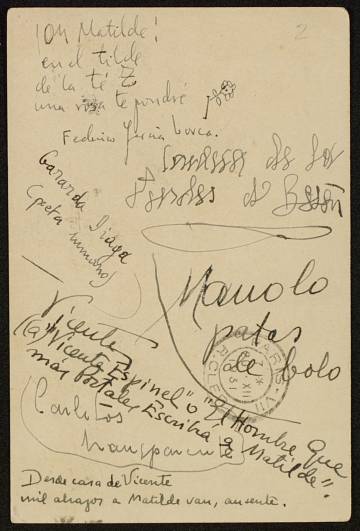 2
¡Oh Matilde!
en el tilde
de la té t
una rosa te pondré
Federico García Lorca.
Condesa de los
Gerardo Diego
(poeta humano)
Manolo
patas
de bolo
PARIS
XII
31
Vicente
(a) "Vicente Espinel" o "El Hombre que
mas Postales Escribía a Matilde".
Carlitos
transparente
Desde casa de Vicente
mil abrazos a Matilde van, ausente.